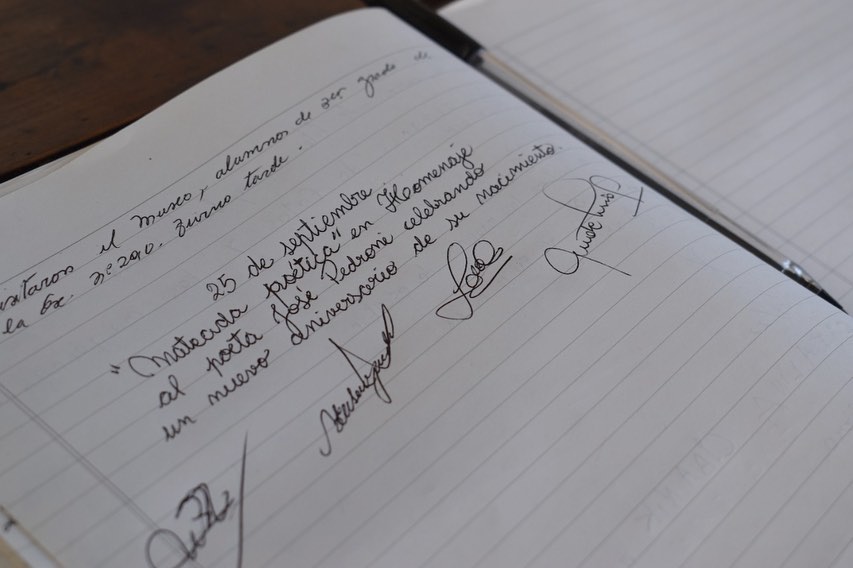 visitaron el museo, alumnos de 3er grado de
la Esc. Nº 290. Turno tarde.
25 de septiembre
"Mateada poética" en Homenaje
al poeta José Pedroni celebrando
un nuevo aniversario de su nacimiento.